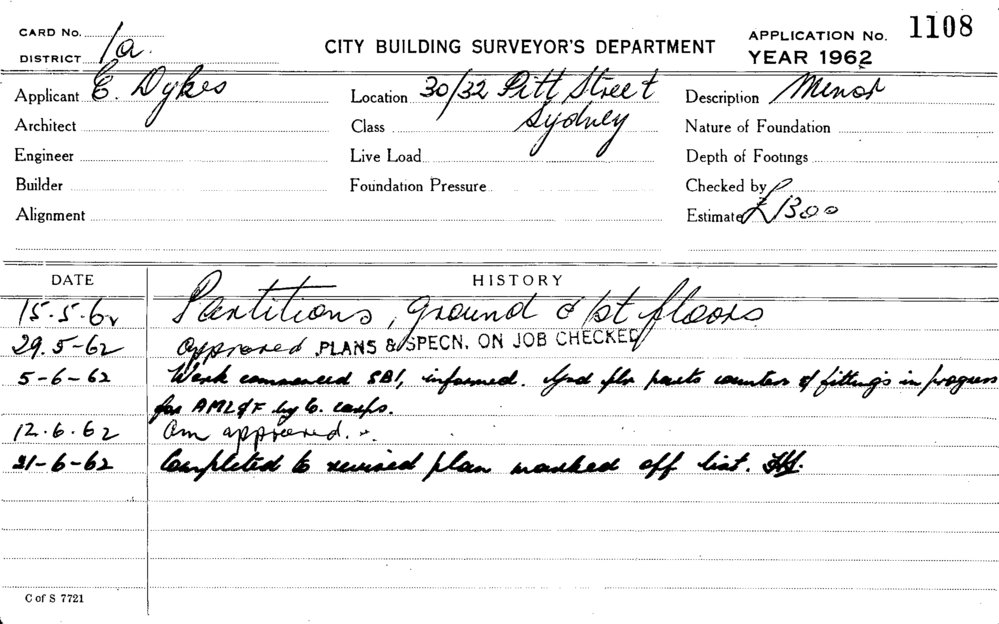 CARD No.
DISTRICT 1a.
CITY BUILDING SURVEYOR'S DEPARTMENT
APPLICATION No. 1108
YEAR 1962
Applicant E. Dykes
Location 30/32 Pitt Street
Description Minor
Architect
Class Sydney
Nature of Foundation
Engineer
Live Load
Depth of Footings
Builder
Foundation Pressure
Checked by
Alignment
Estimate £1300
DATE HISTORY
15.5.62 Partitions, ground & 1st floors
29.5-62 approved PLANS & SPECN. ON JOB CHECKED
5-6-62 Work commenced SBI, informed. Grnd flr parts counters & fittings in progress
for AML&F by C. carps.
12.6.62 Am approved.
21-6-62 Completed to revised plan marked off list.
C of S 7721